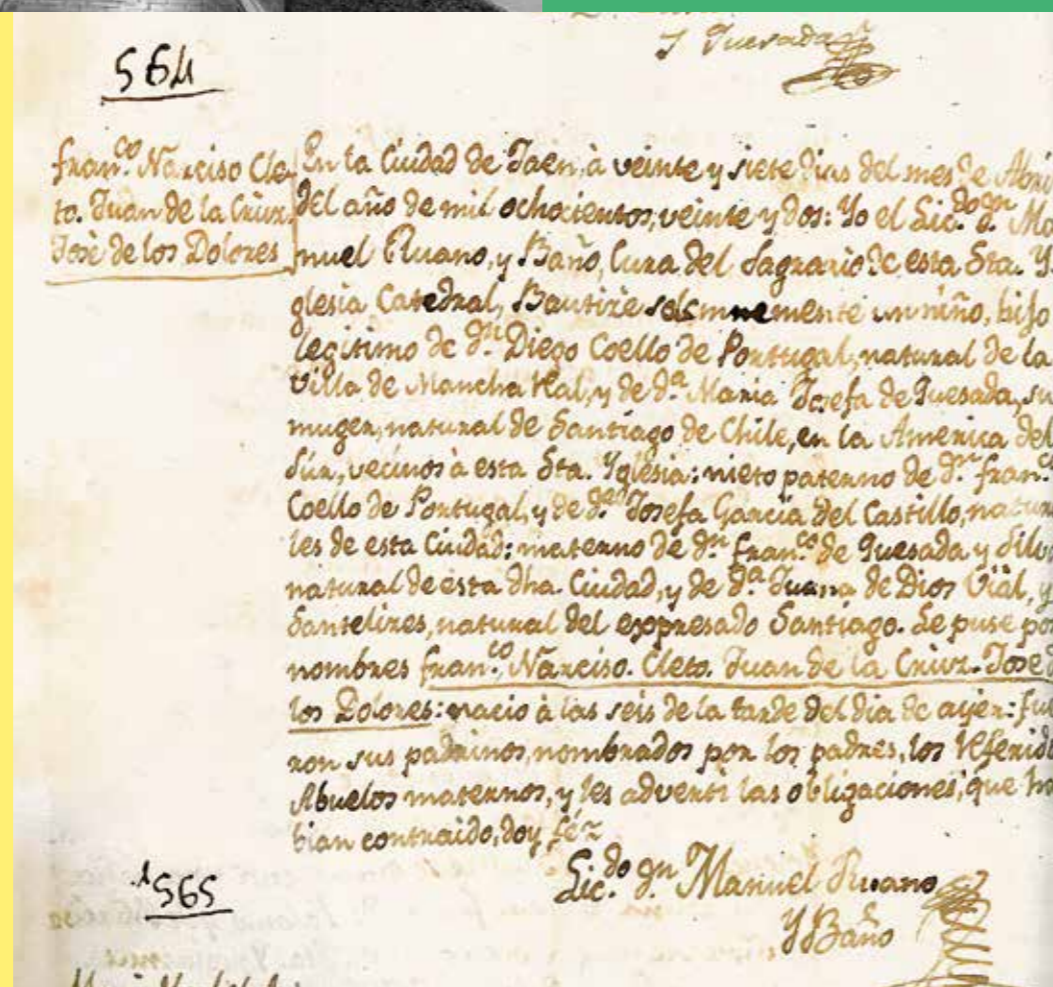 Y Quesada
564
Fran.co Narciso Cle-
to. Juan de la Cruz.
José de los Dolores
En la Ciudad de Jaen, à veinte y siete dias del mes de Abri
del año de mil ochocientos, veinte y dos: Yo el Lic.do dn Ma
nuel Ruano, y Baño, Cura del Sagrario de esta Sta. Y
glesia Catedral, Bautizè solemnemente un niño, hijo
legitimo de dn Diego Coello de Portugal, natural de la
Villa de Mancha Real, y de da. Maria Josefa de Quesada, su
muger, natural de Santiago de Chile, en la America del
Súr, vecinos à esta Sta. Yglesia: nieto paterno de dn. Fran.co
Coello de Portugal, y de da. Josefa Garcia del Castillo, natura
les de esta Ciudad; materno de dn. Fran.co de Quesada y Silva
natural de esta dha. Ciudad, y de da. Juana de Dios Viàl, y
Santelizes, natural del expresado Santiago. Le puse por
nombres Fran.co Narciso. Cleto. Juan de la Cruz. José d
los Dolores: nacio à las seis de la tarde del dia de ayer: fue
ron sus padrinos, nombrados por los padres, los referido
Abuelos maternos, y les adverti las obligaciones, que ha
bian contraido, doy fé
Lic.do dn Manuel Ruano
y Baño
565